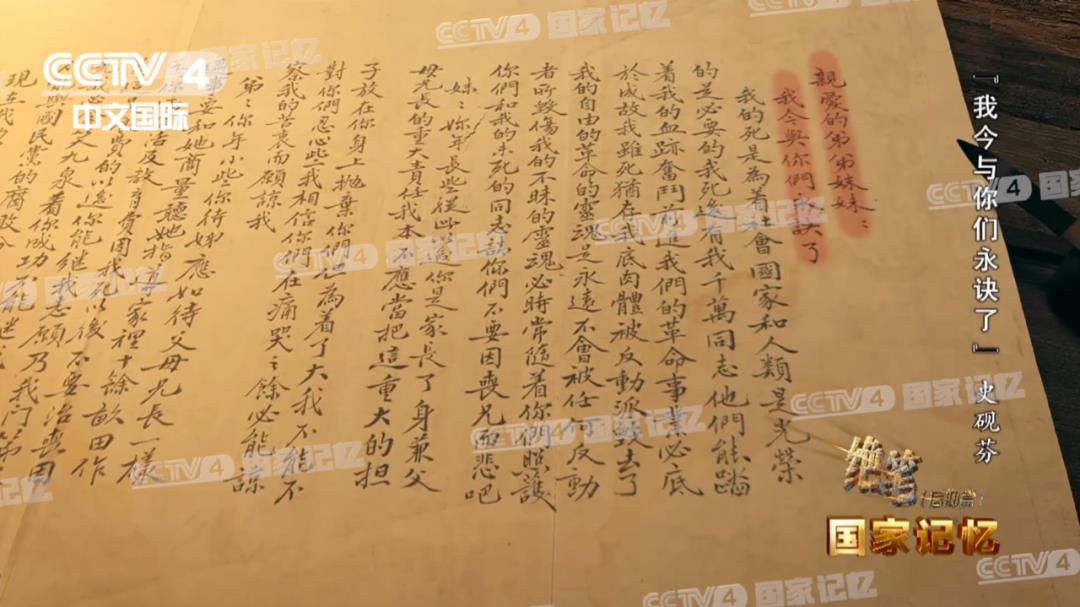 CCTV 4
中文国际
親愛的弟弟妹妹：
我今與你們永訣了
我的死是為着社會國家和人類是光榮
的是必要的我死後有我千萬同志他們能踏
着我的血跡奮鬥前進我們的革命事業必底
於成故我雖死猶在我底肉體被反動派毀去了
我的自由的革命的靈魂是永遠不會被任何反動
者所毀傷我的不昧的靈魂必時常隨着你們照護
你們和我的未死的同志請你們不要因喪兄而悲吧
妹〻妳年長些從此以後你是家長了身兼父
母兄長的重大責任我本不應當把這重大的担
子放在你身上拋棄你們但為着了大我不能不
對你們忍心些我相信你們在痛哭之餘必能諒
察我的苦衷而願諒我
弟〻你年小些你待姊應如待父母兄長一樣
事要和她商量聽她指導家裡十餘畝田作
活及教育費因我死以後不要治喪因
以這你能繼我志願乃我門第
大九泉看你成功不能
國民黨的腐敗
『我今与你们永诀了』 史砚芬
绝笔
信仰篇
国家记忆